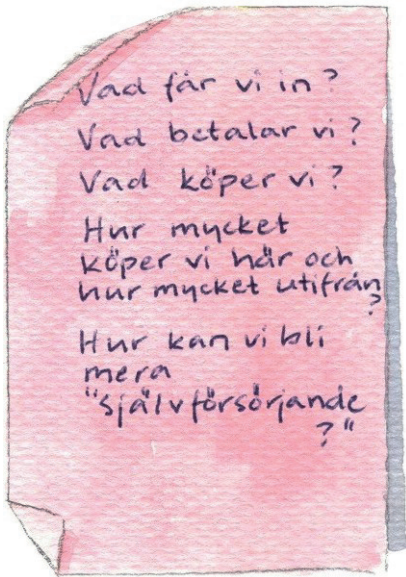 Vad får vi in?
Vad betalar vi?
Vad köper vi?
Hur mycket
köper vi här och
hur mycket utifrån
?
Hur kan vi bli
mera
"självförsörjande
?"